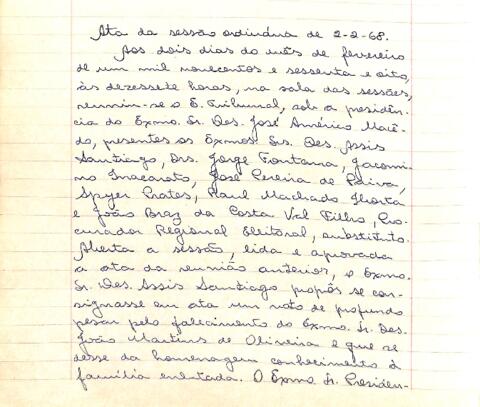 Ata da sessão ordinária de 2-2-68.
Aos dois dias do mês de fevereiro
de um mil novecentos e sessenta e oito,
às dezessete horas, na sala das sessões,
reuniu-se o E. Tribunal, sob a presidên-
cia do Exmo. Sr. Des. José Américo Macê-
do, presentes os Exmos. Srs. Des. Assis
Santiago, Drs. Jorge Fontana, Jacomi-
no Inacarato, José Pereira de Paiva,
Spyer Prates, Raul Machado Horta
e João Braz da Costa Val Filho, Pro-
curador Regional Eleitoral, substituto.
Aberta a sessão, lida e aprovada
a ata da reunião anterior, o Exmo.
Sr. Des. Assis Santiago propôs se con-
signasse em ata um voto de profundo
pesar pelo falecimento do Exmo. Sr. Des.
João Martins de Oliveira e que se
desse da homenagem conhecimento à
família enlutada. O Exmo. Sr. Presiden-